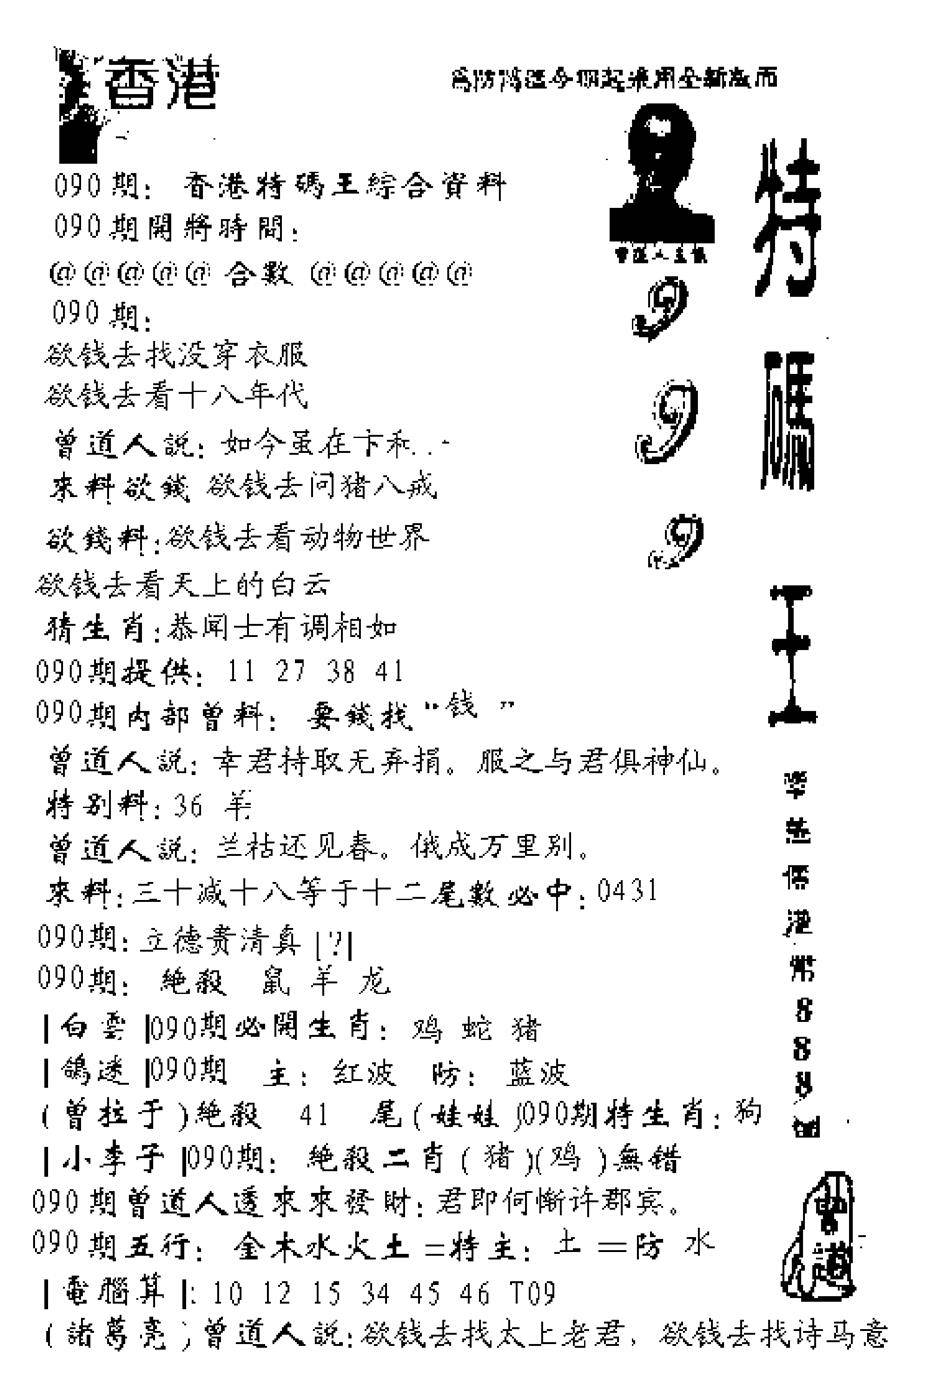 香港
為防偽冒今期起采用全新版面
090期： 香港特碼王綜合資料
090期開將時間：
@@@@@ 合數 @@@@@
090 期：
欲钱去找没穿衣服
欲钱去看十八年代
曾道人説：如今虽在卞和..-
來料欲錢 欲钱去问猪八戒
欲錢料：欲钱去看动物世界
欲钱去看天上的白云
猜生肖：恭闻士有调相如
090期提供： 11 27 38 41
090期内部曾料： 要錢找“钱 ”
曾道人説：幸君持取无弃捐。服之与君俱神仙。
特别料：36 羊
曾道人説：兰枯还见春。俄成万里别。
來料：三十减十八等于十二尾數必中：0431
090期：立德贵清真 [?]
090期： 絶殺 鼠 羊 龙
|白雲|090期必開生肖： 鸡 蛇 猪
|鴿迷|090期 主： 紅波 防： 蓝波
(曾拉于)絶殺 41 尾(娃娃)090期特生肖：狗
|小李子|090期： 絶殺二肖(猪)(鸡)無错
090期曾道人透來來發財：君即何惭许郡宾。
090期五行： 金木水火土=特主： 土 =防 水
|電腦算|：10 12 15 34 45 46 T09
(諸葛亮)曾道人説：欲钱去找太上老君，欲钱去找诗马意
曾道人主儀
999
特碼王
港幣888
曾道